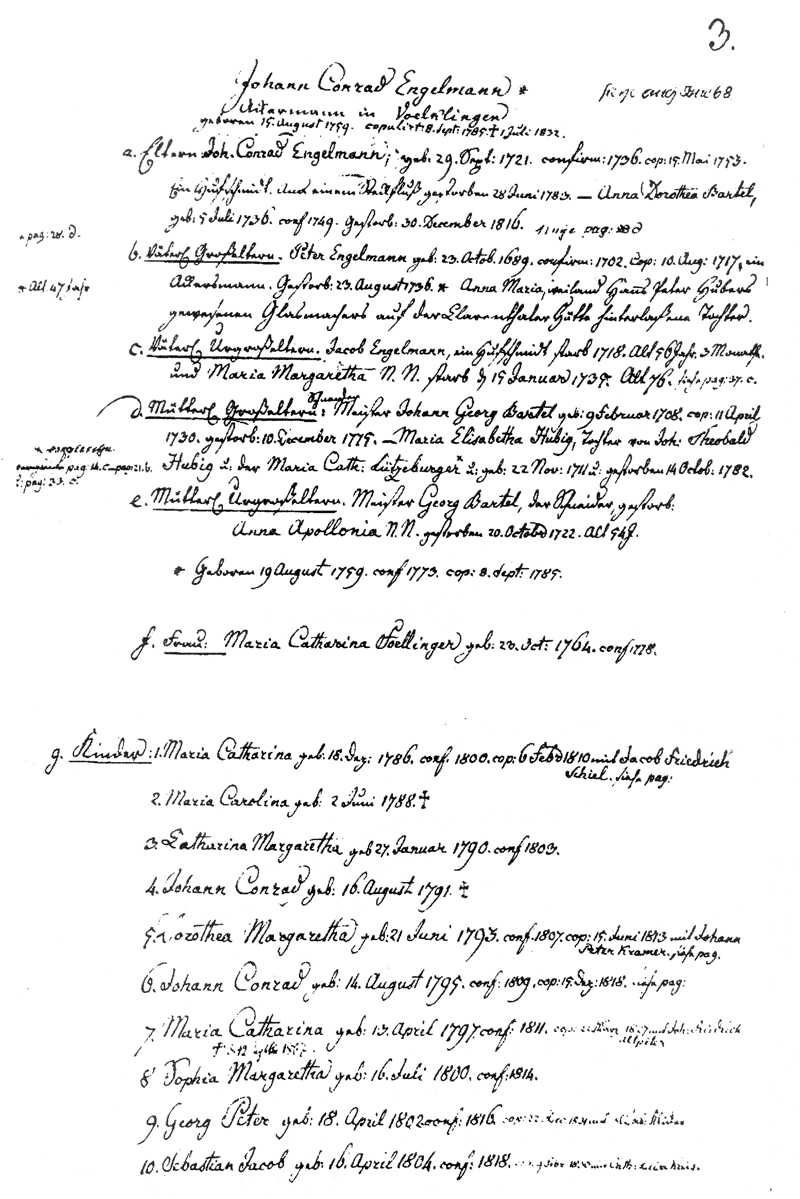 3.
Johann Conrad Engelmann *
siehe auch Seite 68
Ackermann in Voelklingen
geboren 15. August 1759. copulirt 8. Sept: 1785. † 1 Juli 1832.
a. Eltern Joh. Conrad Engelmann, geb: 29. Sept: 1721. confirm: 1736. cop: 15. Mai 1753.
Ein Hufschmidt. Aus einem Steckfluß gestorben 28 Juni 1783. — Anna Dorothea Bartel,
geb: 5 Juli 1736. conf 1749. Gestorb: 30. December 1816. pag:
* pag: 28. d.
b. Väterl. Großeltern. Peter Engelmann geb: 23. Octob. 1689. confirm: 1702. Cop: 10. Aug: 1717, ein
* Alt 47 Jahr
Ackersmann. Gestorb: 23. August 1736. * Anna Maria, weiland Hans Peter Huters
gewesenen Glasmachers auf der Clarenthaler Hütte hinterlaßene Tochter.
c. Väterl. Urgroßeltern. Jacob Engelmann, ein Hufschmidt starb 1718. Alt 56 Jahr. 3 Monath.
und Maria Margaretha N. N. starb d 15 Januar 1735. Alt 76. siehe pag: 37. c.
Schneider
d. Mütterl. Großeltern: Meister Johann Georg Bartel geb: 9 Februar 1708. cop: 11 April
1730. gestorb: 10. December 1775. — Maria Elisabetha Hubig, Tochter von Joh: Theobald
pag 14. c. pag: 21. b.
Hubig u: der Maria Cath: Lützeburger u: geb: 22 Nov: 1711 u: gestorben 14 Octob: 1782.
: pag: 33. c.
e. Mütterl. Urgroßeltern. Meister Georg Bartel, der Schneider, gestorb:
Anna Apollonia N. N. gestorben 20. Octob 1722. Alt 54 J.
* Geboren 19 August 1759. conf 1773. cop: 8. Sept: 1785.
f. Frau: Maria Catharina Foellinger geb: 28. Oct: 1764. conf 1778.
g. Kinder: 1. Maria Catharina geb: 18. Dez: 1786. conf. 1800. cop: 6 Feb 1810 mit Jacob Friedrich
Schiel. siehe pag:
2. Maria Carolina geb: 2 Juni 1788. †
3. Catharina Margaretha geb 27. Januar 1790. conf 1803.
4. Johann Conrad geb: 16. August 1791. †
5. Dorothea Margaretha geb: 21 Juni 1793. conf. 1807. cop: 15. Juni 1813 mit Johann
Peter Kramer. siehe pag.
6. Johann Conrad geb: 14. August 1795. conf: 1809. cop: 15. Dez: 1818. siehe pag:
7. Maria Catharina geb: 13. April 1797. conf: 1811. cop: mit Joh: Friedrich
8 Sophia Margaretha geb: 16. Juli 1800. conf: 1814.
9. Georg Peter geb: 18. April 1802 conf: 1816. cop:
10. Sebastian Jacob geb: 16. April 1804. conf: 1818.